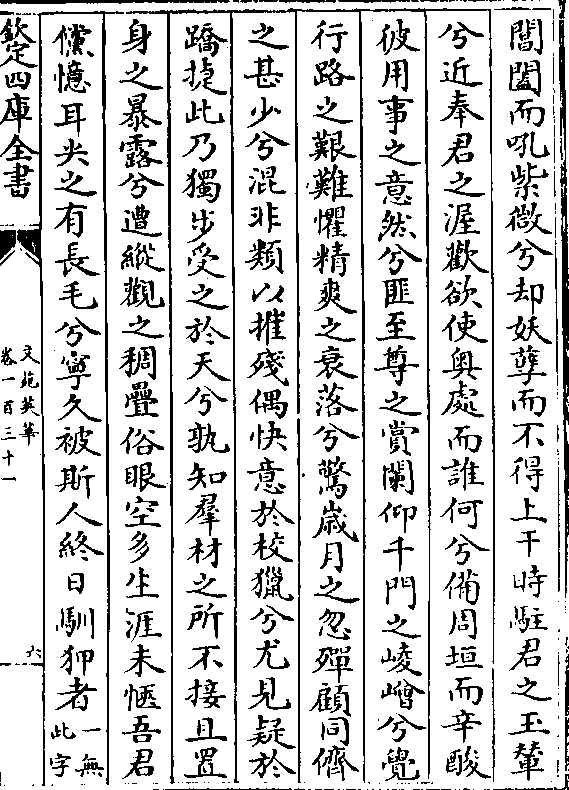 閶闔而吼紫微兮却妖孽而不得上干時駐君之玉輦
兮近奉君之渥歡欲使奥處而誰何兮備周垣而辛酸
彼用事之意然兮匪至尊之賞闌仰千門之崚嶒兮覺
行路之艱難懼精爽之衰落兮驚歲月之忽殫顧同儕
之甚少兮混非類以摧殘偶快意於校獵兮尤見疑於
蹻捷此乃獨步受之於天兮孰知羣材之所不接且置
身之暴露兮遭縱觀之稠疊俗眼空多生涯未愜吾君
儻憶耳尖之有長毛兮寧久被斯人終日馴狎者一無此字
欽定四庫全書
文苑英華
卷一百三十一
六